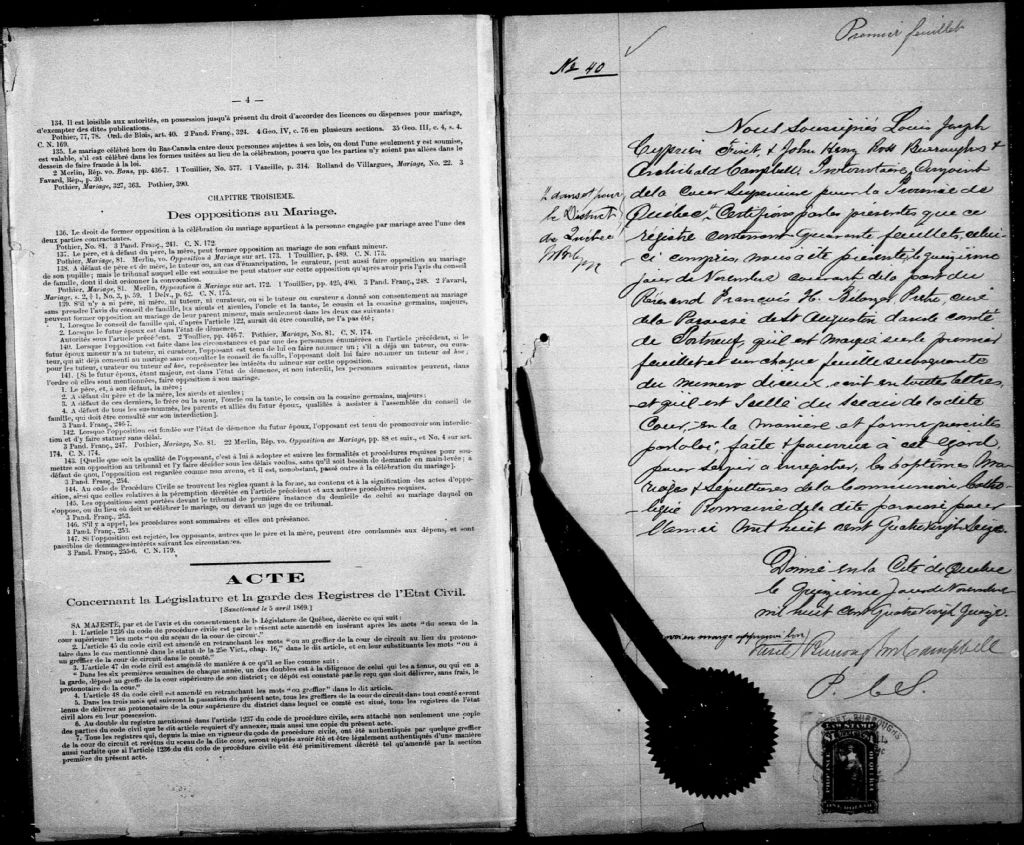 — 4 —
134. Il est loisible aux autorités, en possession jusqu'à présent du droit d'accorder des licences ou dispenses pour mariage,
d'exempter des dites publications.
Pothier, 77, 78. Ord. de Blois, art. 40. 2 Pand. Franç., 324. 4 Geo. IV, c. 76 en plusieurs sections. 35 Geo. III, c. 4, s. 4.
C. N. 169.
135. Le mariage célébré hors du Bas-Canada entre deux personnes sujettes à ses lois, ou dont l'une seulement y est soumise,
est valable, s'il est célébré dans les formes usitées au lieu de la célébration, pourvu que les parties n'y soient pas allées dans le
dessein de faire fraude à la loi.
2 Merlin, Rép. vo. Bans, pp. 436-7. 1 Touillier, No. 577. 1 Vazeille, p. 314. Rolland de Villargues, Mariage, No. 22. 3
Favard, Rép., p. 30.
Pothier, Mariage, 327, 363. Pothier, 390.
CHAPITRE TROISIEME.
Des oppositions au Mariage.
136. Le droit de former opposition à la célébration du mariage appartient à la personne engagée par mariage avec l'une des
deux parties contractantes.
Pothier, No. 81. 3 Pand. Franç., 241. C. N. 172.
137. Le père, et à défaut du père, la mère, peut former opposition au mariage de son enfant mineur.
Pothier, Mariage, 81. Merlin, vo. Opposition à Mariage sur art. 173. 1 Touillier, p. 489. C. N. 173.
138. A défaut de père et de mère, le tuteur ou, au cas d'émancipation, le curateur, peut aussi faire opposition au mariage
de son pupille; mais le tribunal auquel elle est soumise ne peut statuer sur cette opposition qu'après avoir pris l'avis du conseil
de famille, dont il doit ordonner la convocation.
Pothier, Mariage, 81. Merlin, Opposition à Mariage sur art. 172. 1 Touillier, pp. 425, 490. 3 Pand. Franç., 248. 2 Favard,
Mariage, s. 2, § 1, No. 3, p. 59. 1 Delv., p. 62. C. N. 175.
139. S'il n'y a ni père, ni mère, ni tuteur, ni curateur, ou si le tuteur ou curateur a donné son consentement au mariage
sans prendre l'avis du conseil de famille, les aïeuls et aïeules, l'oncle et la tante, le cousin et la cousine germains, majeurs,
peuvent former opposition au mariage de leur parent mineur, mais seulement dans les deux cas suivants:
1. Lorsque le conseil de famille qui, d'après l'article 122, aurait dû être consulté, ne l'a pas été;
2. Lorsque le futur époux est dans l'état de démence.
Autorités sous l'article précédent. 2 Touillier, pp. 446-7. Pothier, Mariage, No. 81. C. N. 174.
140. Lorsque l'opposition est faite dans les circonstances et par une des personnes énumérées en l'article précédent, si le
futur époux mineur n'a ni tuteur, ni curateur, l'opposant est tenu de lui en faire nommer un; s'il a déjà un tuteur, ou curateur,
qui ait déjà consenti au mariage sans consulter le conseil de famille, l'opposant doit lui faire nommer un tuteur ad hoc;
pour les tuteur, curateur ou tuteur ad hoc, représenter les intérêts du mineur sur cette opposition.
141. [Si le futur époux, étant majeur, est dans l'état de démence, et non interdit, les personnes suivantes peuvent, dans
l'ordre où elles sont mentionnées, faire opposition à son mariage.
1. Le père, et, à son défaut, la mère;
2. A défaut du père et de la mère, les aïeuls et aïeules;
3. A défaut de ces derniers, le frère ou la sœur, l'oncle ou la tante, le cousin ou la cousine germains, majeurs;
4. A défaut de tous les sus-nommés, les parents et alliés du futur époux, qualifiés à assister à l'assemblée du conseil de
famille, qui doit être consulté sur son interdiction].
3 Pand. Franç., 246-7.
142. Lorsque l'opposition est fondée sur l'état de démence du futur époux, l'opposant est tenu de promouvoir son interdiction
et d'y faire statuer sans délai.
3 Pand. Franç., 247. Pothier, Mariage, No. 81. 22 Merlin, Rép. vo. Opposition au Mariage, pp. 88 et suiv., et No. 4 sur art.
174. C. N. 174.
143. [Quelle que soit la qualité de l'opposant, c'est à lui à adopter et suivre les formalités et procédures requises pour soumettre
son opposition au tribunal et l'y faire décider sous les délais voulus, sans qu'il soit besoin de demande en main-levée; à
défaut de quoi, l'opposition est regardée comme non avenu, et il est, nonobstant, passé outre à la célébration du mariage].
3 Pand. Franç., 254.
144. Au code de Procédure Civile se trouvent les règles quant à la forme, au contenu et à la signification des actes d'opposition,
ainsi que celles relatives à la péremption décrétée en l'article précédent et aux autres procédures requises.
145. Les oppositions sont portées devant le tribunal de première instance du domicile de celui au mariage duquel on
s'oppose, ou du lieu où doit se célébrer le mariage, ou devant un juge de ce tribunal.
3 Pand. Franç., 253.
146. S'il y a appel, les procédures sont sommaires et elles ont préséance.
3 Pand. Franç., 253.
147. Si l'opposition est rejetée, les opposants, autres que le père et la mère, peuvent être condamnés aux dépens, et sont
passibles de dommages-intérêts suivant les circonstances.
3 Pand. Franç., 255-6. C. N. 179.
ACTE
Concernant la Législature et la garde des Registres de l'Etat Civil.
[Sanctionné le 5 avril 1869.]
SA MAJESTE, par et de l'avis et du consentement de la Législature de Québec, décrète ce qui suit:
1. L'article 1236 du code de procédure civile est par le présent acte amendé en insérant après les mots "du sceau de la
cour supérieure" les mots "ou du sceau de la cour de circuit."
2. L'article 45 du code civil est amendé en retranchant les mots "ou au greffier de la cour de circuit au lieu du protonotaire
dans le cas mentionné dans le statut de la 25e Vict., chap. 16," dans le dit article, et en leur substituant les mots "ou à
un greffier de la cour de circuit dans le comté."
3. L'article 47 du code civil est amendé de manière à ce qu'il se lise comme suit:
"Dans les six premières semaines de chaque année, un des doubles est à la diligence de celui qui les a tenus, ou qui en a
la garde, déposé au greffe de la cour supérieure de son district; ce dépôt est constaté par le reçu que doit délivrer, sans frais, le
protonotaire de la cour."
4. L'article 48 du code civil est amendé en retranchant les mots "ou greffier" dans le dit article.
5. Dans les trois mois qui suivront la passation du présent acte, tous les greffiers de la cour de circuit dans tout comté seront
tenus de délivrer au protonotaire de la cour supérieure du district dans lequel ce comté est situé, tous les registres de l'état
civil alors en leur possession.
6. Au double du registre mentionné dans l'article 1237 du code de procédure civile, sera attaché non seulement une copie
des parties du code civil que le dit article requiert d'y annexer, mais aussi une copie du présent acte.
7. Tous les registres qui, depuis la mise en vigueur du code de procédure civile, ont été authentiqués par quelque greffier
de la cour de circuit et revêtus du sceau de la dite cour, seront réputés avoir été et être légalement authentiqués d'une manière
aussi parfaite que si l'article 1236 du dit code de procédure civile eût été primitivement décrété tel qu'amendé par la section
première du présent acte.
Premier feuillet
No 40
Nous Soussignés Louis Joseph
Cyprien Fiset, & John Henry Ross Burroughs &
Archibald Campbell, Protonotaire, Conjoint
de la Cour Superieure pour la Province de
Québec Certifions par les présentes que ce
registre contenant Quarante feuillets, celui
ci compris, nous a été présenté le quinzième
jour de Novembre courant de la part du
Révérend François H. Bélanger Prêtre, curé
de la Paroisse de St Augustin dans le comté
de Portneuf, qu'il est marqué sur le premier
feuillet et sur chaque feuillet subséquents
du numéro d'iceux, écrit en toutes lettres,
et qu'il est Scellé du Sceau de la dite
Cour, en la manière et forme prescrites
par la loi, faite & pourvue à cet égard,
pour servir à enregistrer, les baptêmes Ma-
riages & Sépultures de la Communion Catho-
lique Romaine de la dite paroisse pour
l'année Mil huit cent Quatre Vingt Seize
" dans et pour
le District
de Québec
Donné en la Cité de Québec
le Quinzième Jour de Novembre
mil huit cent Quatre Vingt Quinze
Fiset Burroughs Campbell
P. C. S.
BURROUGHS
LAW STAMP
PROVINCE
OF QUEBEC
ONE DOLLAR